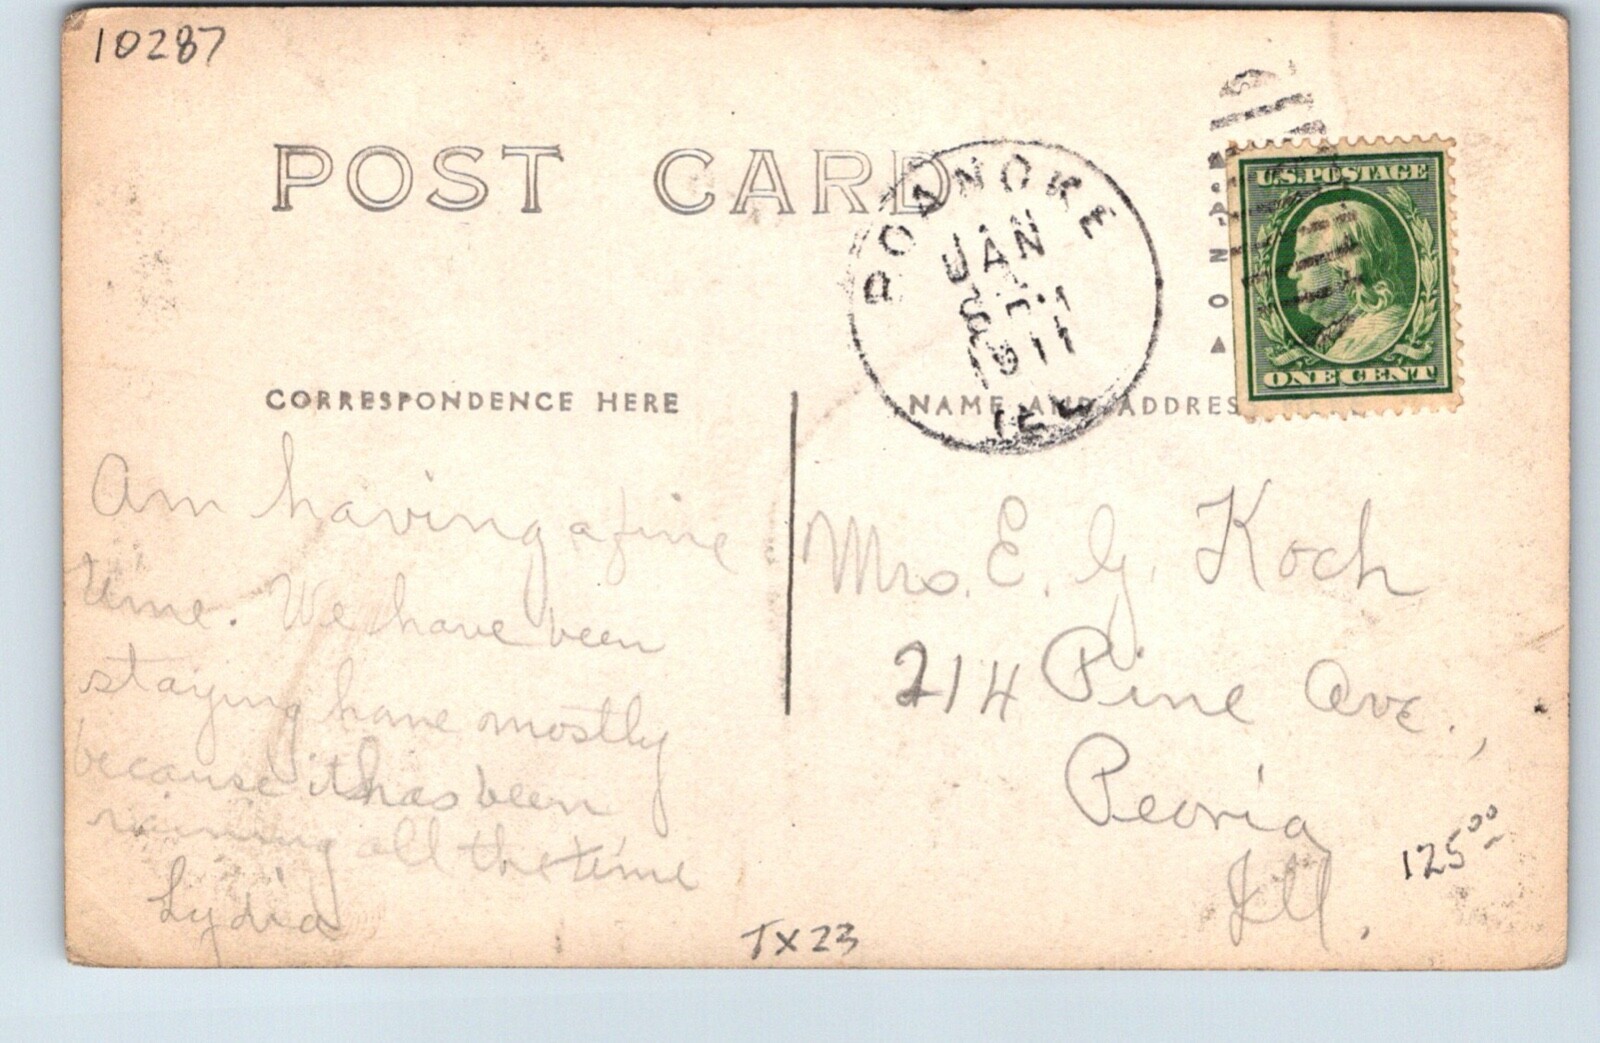 10287
POST CARD
ROANOKE
JAN
1911
ILL
U.S. POSTAGE
ONE CENT
AZO
CORRESPONDENCE HERE
NAME AND ADDRES
Am having a fine
time. We have been
staying home mostly
because it has been
raining all the time
Lydia
Mrs. E. G. Koch
214 Pine Ave.,
Peoria
Ill.
125⁰⁰
TX23